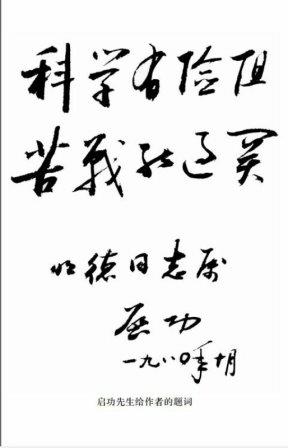 科学有险阻
苦战能过关
明德同志属
启功
一九八〇年十月
启功先生给作者的题词